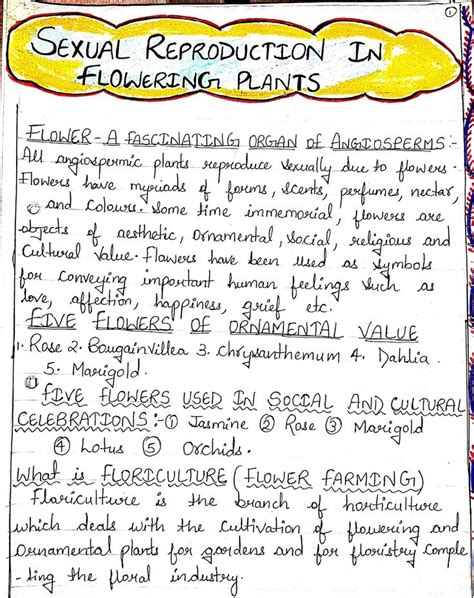 ①
SEXUAL REPRODUCTION IN
FLOWERING PLANTS
FLOWER - A FASCINATING ORGAN OF ANGIOSPERMS:-
All angiospermic plants reproduce sexually due to flowers.
Flowers have myriads of forms, scents, perfumes, nectar,
and colours. Some time immemorial, flowers are
objects of aesthetic, ornamental, social, religious and
cultural value. Flowers have been used as symbols
for conveying important human feelings such as
love, affection, happiness, grief etc.
FIVE FLOWERS OF ORNAMENTAL VALUE
1. Rose 2. Bougainvillea 3. Chrysanthemum 4. Dahlia.
5. Marigold.
FIVE FLOWERS USED IN SOCIAL AND CULTURAL
CELEBRATIONS:-① Jasmine ② Rose ③ Marigold
④ Lotus ⑤ Orchids.
What is FLORICULTURE (FLOWER FARMING)
Floriculture is the branch of horticulture
which deals with the cultivation of flowering and
ornamental plants for gardens and for floristry comple
-ting the floral industry.